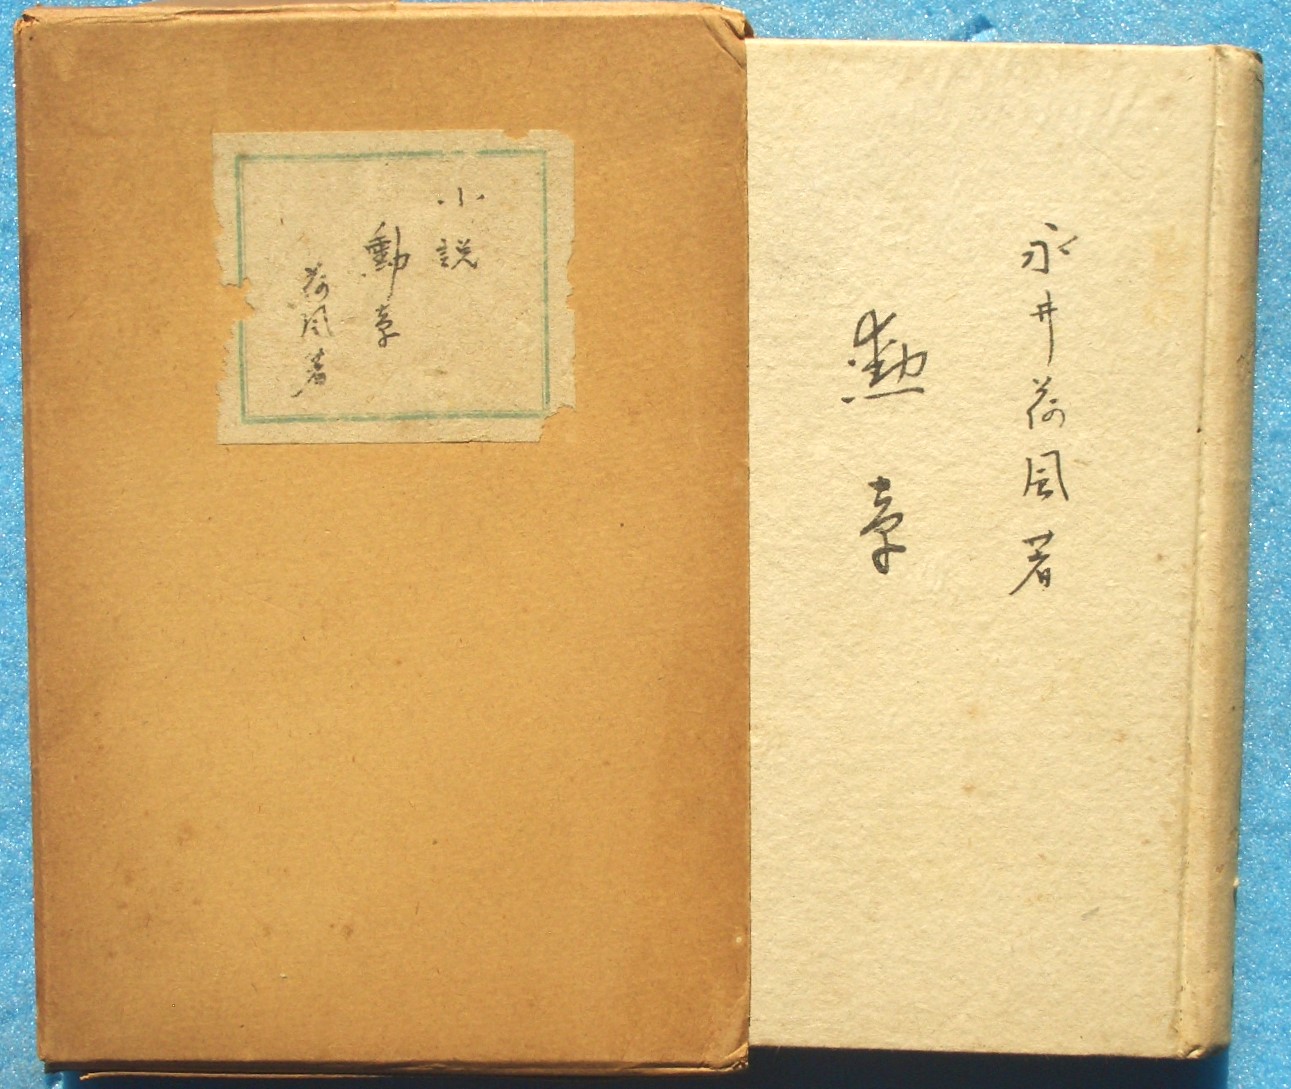 小説
勲章
荷風著
永井荷風著
勲章